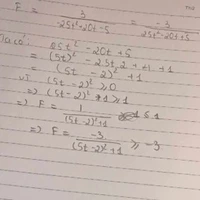 F = 3 / -25t² + 20t - 5 = -3 / 25t² - 20t + 5
Ta có: 25t² - 20t + 5
= (5t)² - 2.5t.2 + 4 + 1
= (5t - 2)² + 1
vì (5t - 2)² ≥ 0
=> (5t - 2)² + 1 ≥ 1
=> F = 1 / (5t - 2)² + 1 ≤ 1
=> F = -3 / (5t - 2)² + 1 ≥ -3